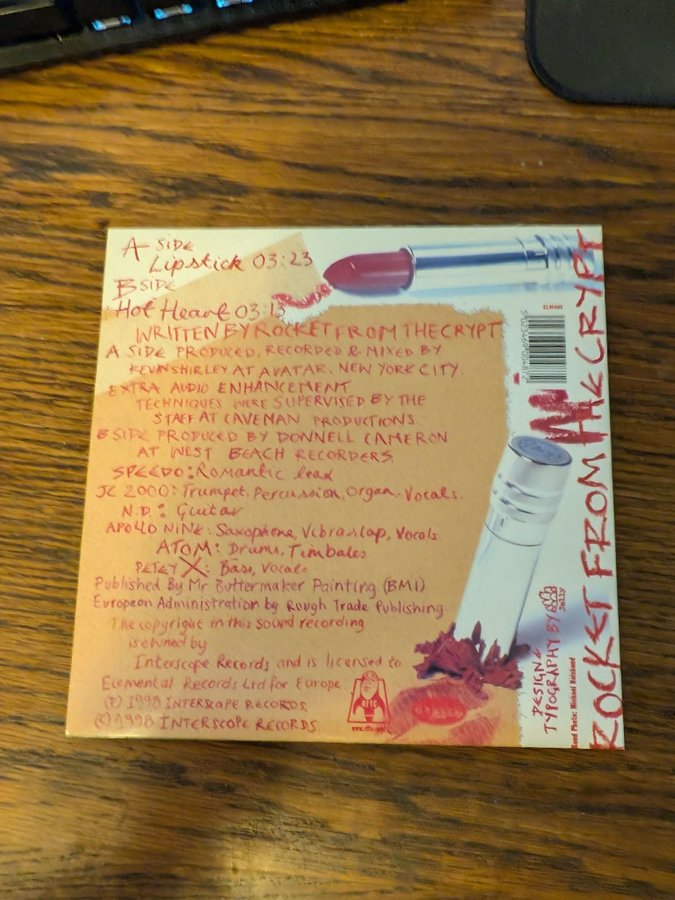 A SIDE
Lipstick 03:23
B SIDE
Hot Heart 03:13
WRITTEN BY ROCKET FROM THE CRYPT
A SIDE PRODUCED, RECORDED & MIXED BY
KEVIN SHIRLEY AT AVATAR, NEW YORK CITY
EXTRA AUDIO ENHANCEMENT
TECHNIQUES WERE SUPERVISED BY THE
STAFF AT CAVEMAN PRODUCTIONS.
B SIDE PRODUCED BY DONNELL CAMERON
AT WEST BEACH RECORDERS
SPEEDO: Romantic lead
JC 2000: Trumpet, Percussion, Organ, Vocals.
N.D.: Guitar
APOLLO NINE: Saxophone, Vibraslap, Vocals
ATOM: Drums, Timbales
PETEY X: Bass, Vocals
Published By Mr Buttermaker Painting (BMI)
European Administration by Rough Trade Publishing
The copyright in this sound recording
is owned by
Interscope Records and is licensed to
Elemental Records Ltd for Europe
(P) 1998 INTERSCOPE RECORDS
(C) 1998 INTERSCOPE RECORDS
RFTC
www.rftc.com
ELM48S
5023469004872
DESIGN &
TYPOGRAPHY BY
Jolly
Band Photo: Michael Halsband
ROCKET FROM THE CRYPT